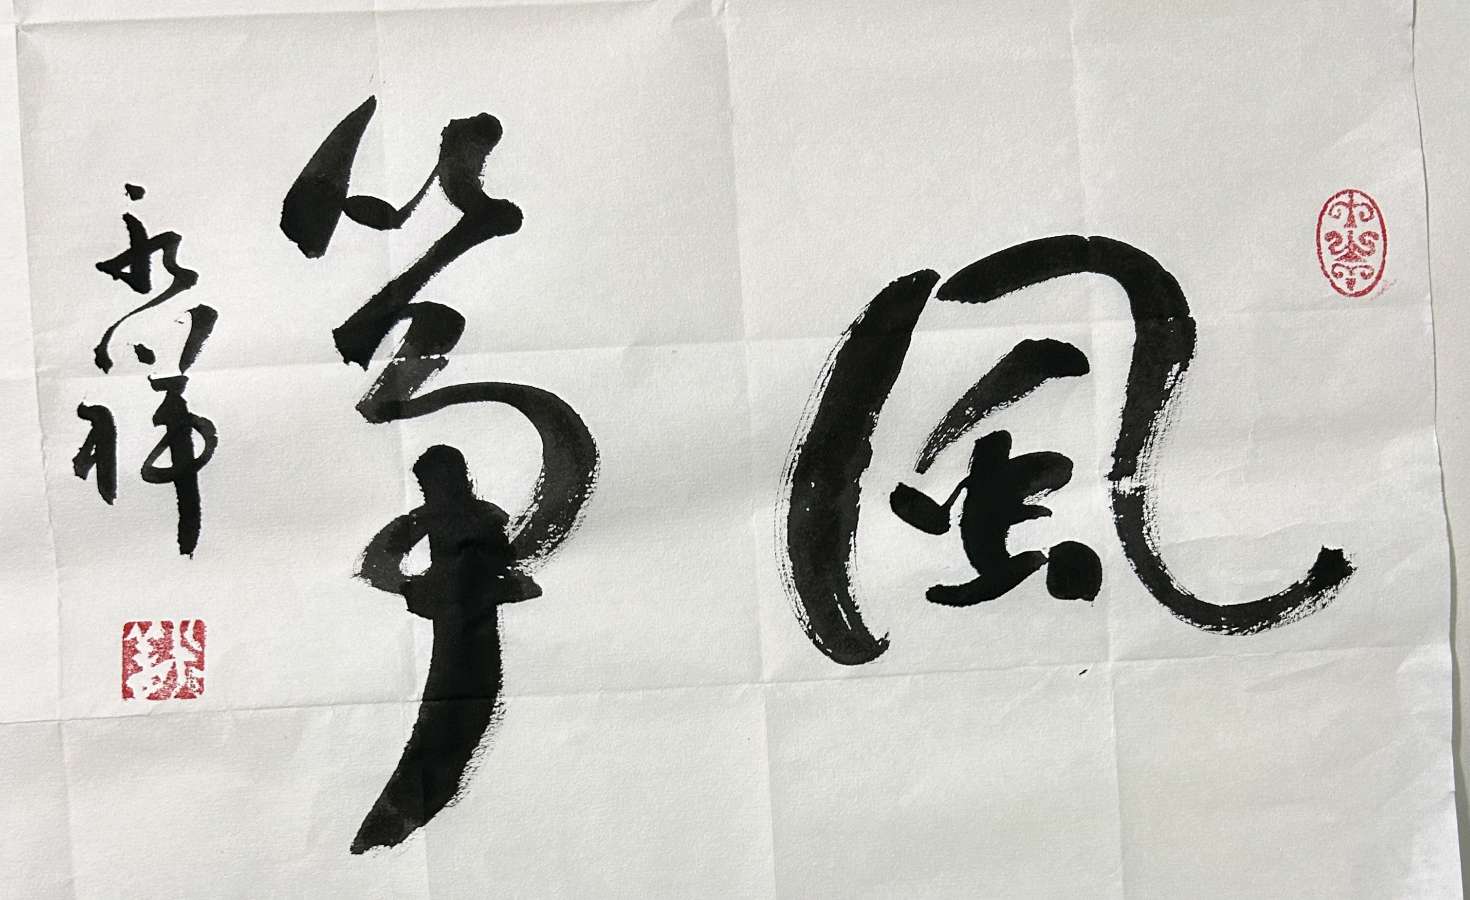 風箏
永祥